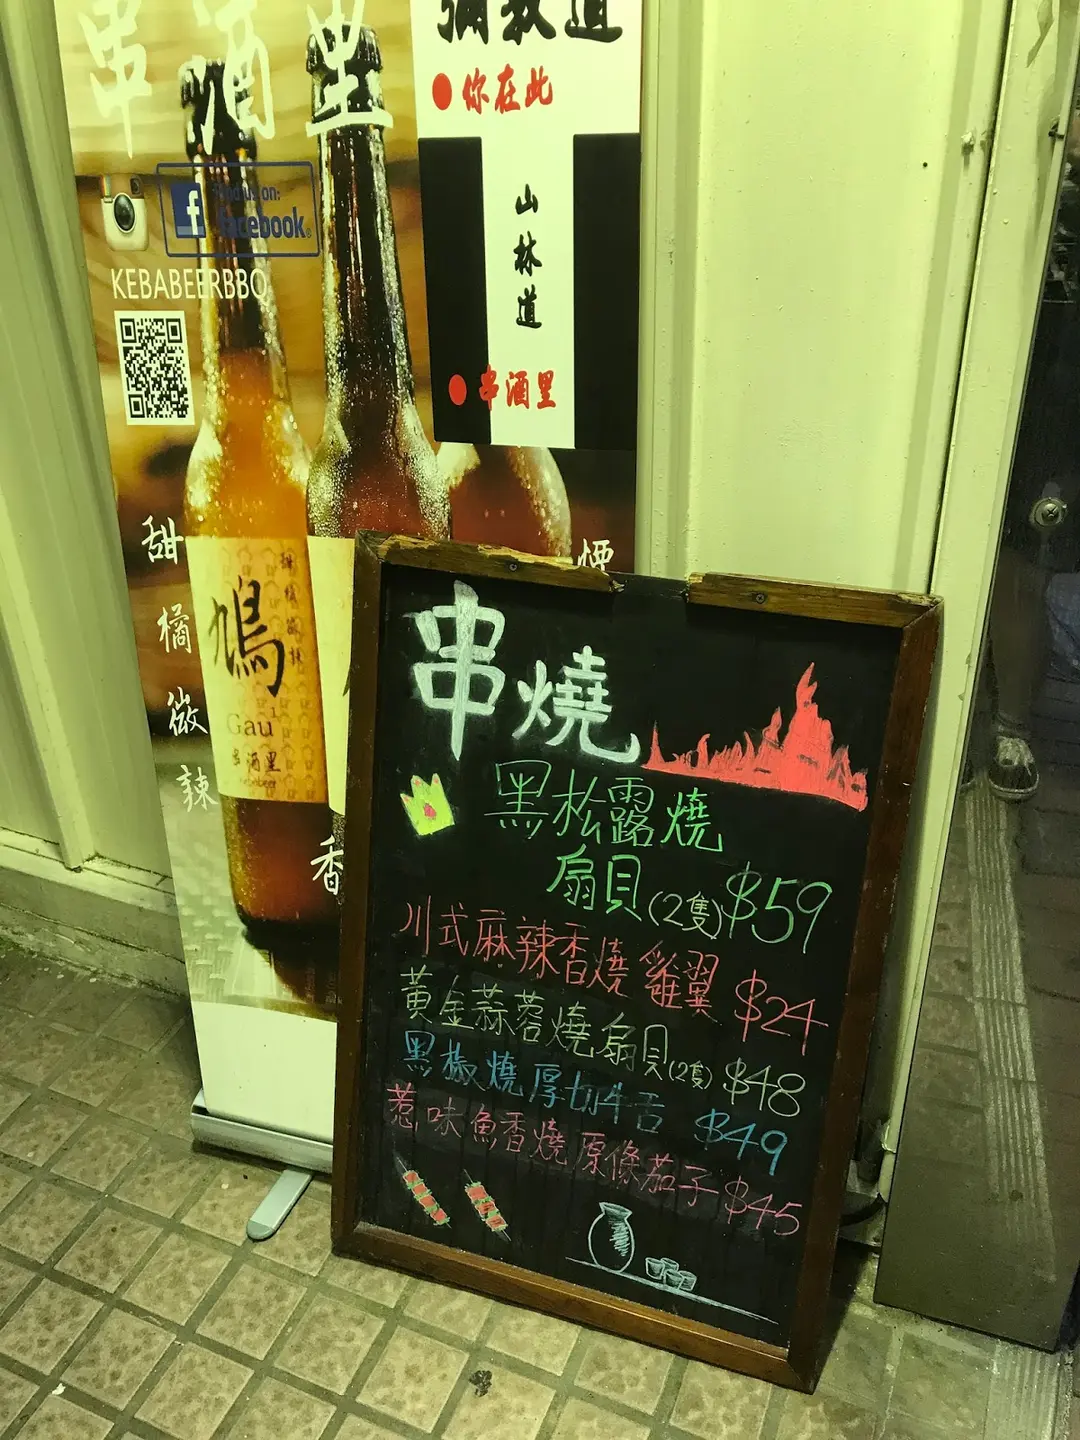 串酒里
find us on:
facebook
KEBABEERBBQ
彌敦道
你在此
山林道
串酒里
甜橘微辣
鳩
Gau
串酒里
煙
香
串燒
黑松露燒
扇貝(2隻)$59
川式麻辣香燒雞翼 $24
黃金蒜蓉燒扇貝(2隻) $48
黑椒燒厚切牛舌 $49
惹味魚香燒原條茄子 $45